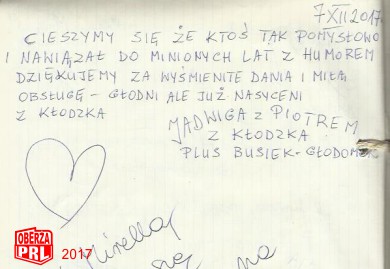 7 XII 2017
CIESZYMY SIĘ ŻE KTOŚ TAK POMYSŁOWO
I NAWIĄZAŁ DO MINIONYCH LAT Z HUMOREM
DZIĘKUJEMY ZA WYŚMIENITE DANIA I MIŁĄ
OBSŁUGĘ - GŁODNI ALE JUŻ NASYCENI
Z KŁODZKA
JADWIGA Z PIOTREM
Z KŁODZKA
PLUS BUSIEK-GŁODOMOR
Mirella
OBERŻA
PRL
2017
na